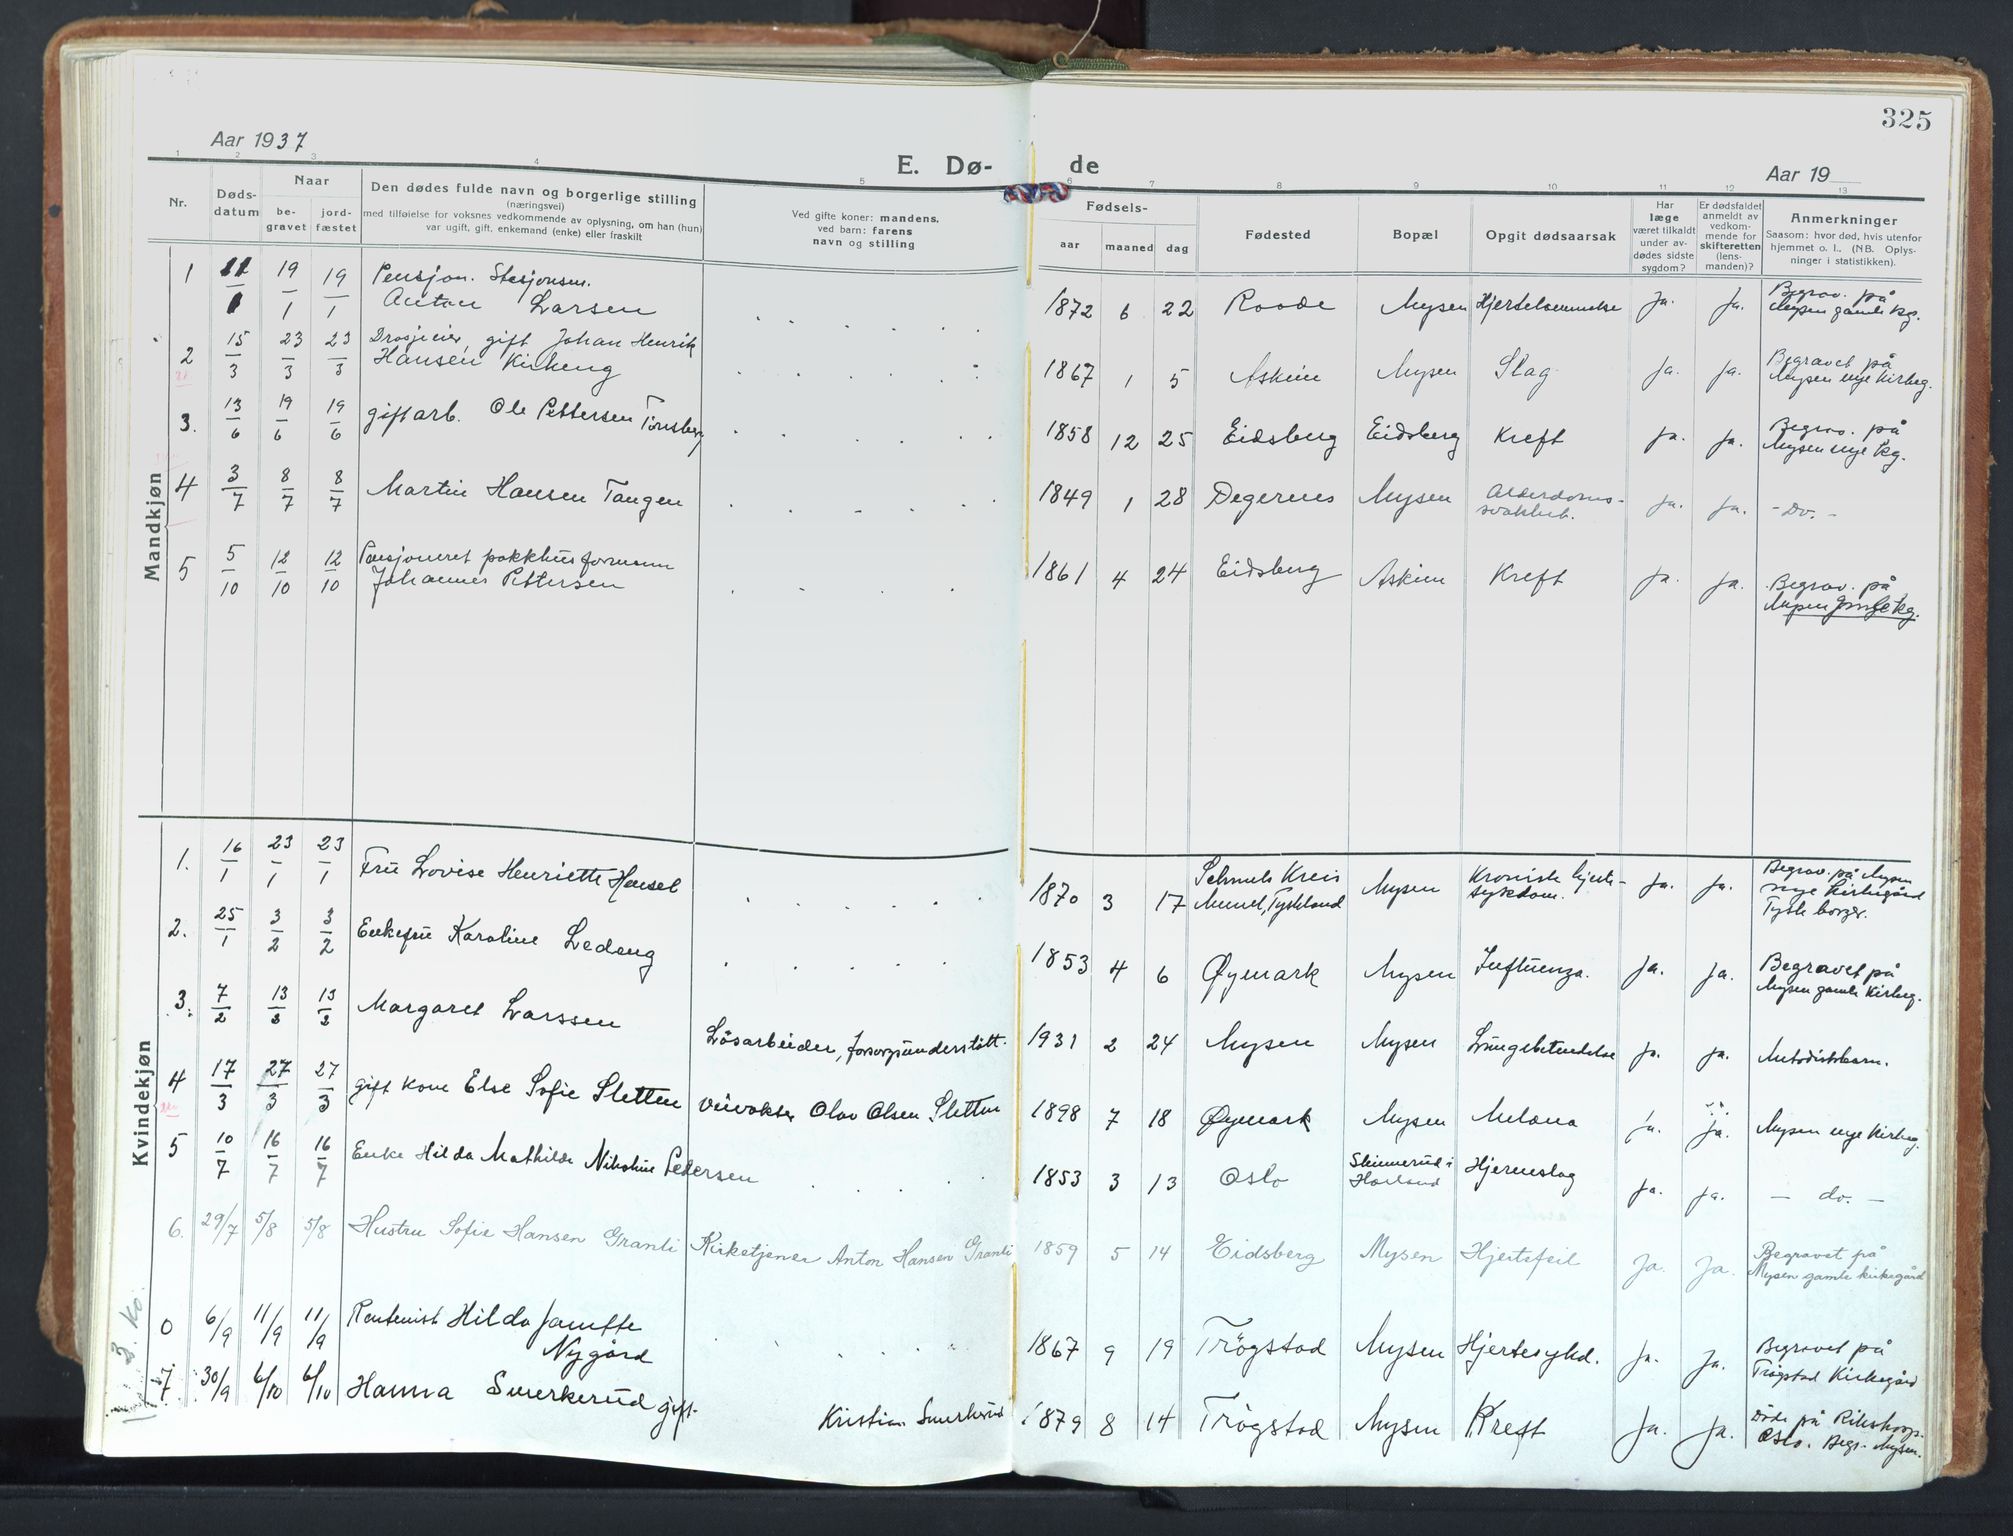 325
Aar 1937
E. Dø- de
Aar 19
1 2 3 4 5 6 7 8 9 10 11 12 13
Nr.
Døds-
datum
Naar
be-
gravet
jord-
fæstet
Den dødes fulde navn og borgerlige stilling
(næringsvei)
med tilføielse for voksnes vedkommende av oplysning, om han (hun)
var ugift, gift, enkemand (enke) eller fraskilt
Ved gifte koner: mandens.
ved barn: farens
navn og stilling
Fødsels-
aar maaned dag
Fødested
Bopæl
Opgit dødsaarsak
Har
læge
været tilkaldt
under av-
dødes sidste
sygdom?
Er dødsfaldet
anmeldt av
vedkom-
mende for
skifteretten
(lens-
manden)?
Anmerkninger
Saasom: hvor død, hvis utenfor
hjemmet o. l., (NB. Oplys-
ninger i statistikken).
Mandkjøn
1 11/1 19/1 19/1 Pensjon. Stasjonsm.
Anton Larsen 1872 6 22 Raade Mysen Hjertelammelse Ja. Ja. Begrav. på
Mysen gamle kg.
2 15/3 23/3 23/3 Drosjeeier, gift Johan Henrik
Hansen Kirkeng 1867 1 5 Askim Mysen Slag Ja. Ja. Begravet på
Mysen nye Kirkeg.
3. 13/6 19/6 19/6 gift arb. Ole Pettersen Tønsberg 1858 12 25 Eidsberg Eidsberg Kreft Ja. Ja. Begrav. på
Mysen nye kg.
4 3/7 8/7 8/7 Martin Hansen Tangen 1849 1 28 Degernes Mysen Alderdoms-
svakhet. Ja. Ja. - Do. -
5 5/10 12/10 12/10 Pensjoneret pakkhusformann
Johannes Pettersen 1861 4 24 Eidsberg Askim Kreft Ja. Ja. Begrav. på
Mysen gamle kg.
Kvindekjøn
1. 16/1 23/1 23/1 Fru Lovise Henriette Hensel 1870 3 17 Kreis
Memel, Tyskland Mysen Kronisk hjerte-
sykdom. Ja. Ja. Begrav. på Mysen
nye Kirkegård
Tysk borger.
2. 25/1 3/2 3/2 Enkefru Karoline Ledeng 1853 4 6 Øymark Mysen Influenza. Ja. Ja. Begravet på
Mysen gamle Kirkeg.
3. 7/2 13/2 13/2 Margaret Larssen Løsarbeider, forsorgsunderstøtt. 1931 2 24 Mysen Mysen Lungebetendelse Ja. Ja. Metodistbarn.
4 17/3 27/3 27/3 gift kone Else Sofie Sletten Veivokter Olav Olsen Sletten 1898 7 18 Øymark Mysen Melæna Ja. Ja. Mysen nye Kirkeg.
5 10/7 16/7 16/7 Enke Hilda Mathilde Nikoline Pedersen 1853 3 13 Oslo Skinnerud i
Hærland Hjerneslag Ja. Ja. - do. -
6. 29/7 5/8 5/8 Hustru Sofie Hansen Granli Kirketjener Anton Hansen Granli 1859 5 14 Eidsberg Mysen Hjertefeil Ja. Ja. Begravet på
Mysen gamle kirkegård
0 6/9 11/9 11/9 Rentenist Hilda Janette
Nygård 1867 9 19 Trøgstad Mysen Hjertesykd. Ja. Ja. Begravet på
Trøgstad Kirkegård
7. 30/9 6/10 6/10 Hanna Smerkerud gift. Kristian Smerkerud 1879 8 14 Trøgstad Mysen Kreft Ja. Ja. Døde på Rikshosp.
Oslo. Begr. Mysen.